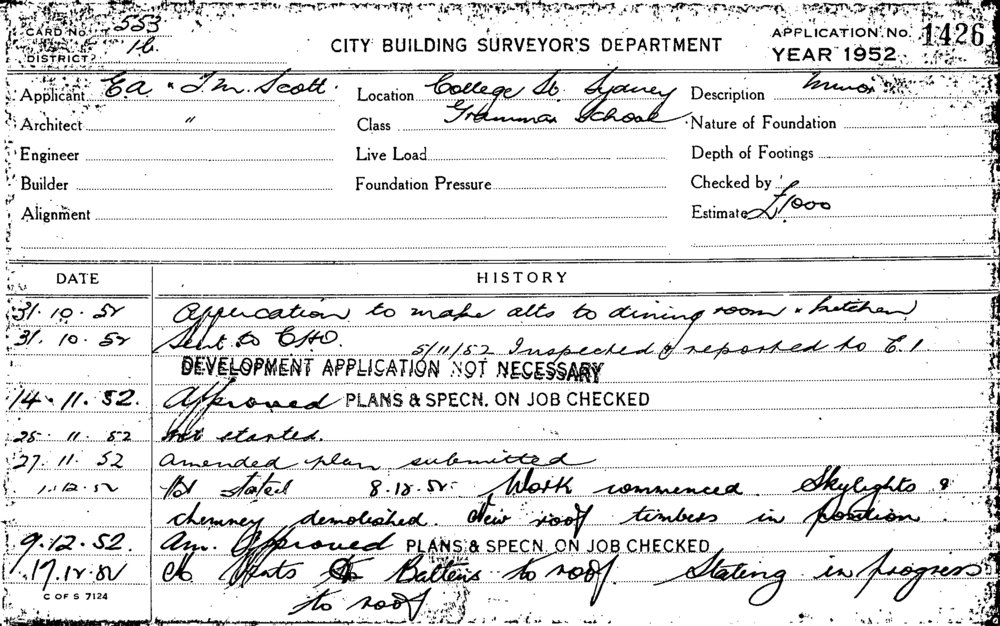 CARD No. 553
16
DISTRICT
CITY BUILDING SURVEYOR'S DEPARTMENT
APPLICATION No. 1426
YEAR 1952
Applicant E.A. & T.M. Scott. Location College St. Sydney Description Minor
Architect " Class Grammar School Nature of Foundation
Engineer Live Load Depth of Footings
Builder Foundation Pressure Checked by
Alignment Estimate £1000
DATE HISTORY
31.10.52 Application to make alts to dining room & kitchen
31.10.52 Sent to CHO. 5/11/52 Inspected & reported to E1
DEVELOPMENT APPLICATION NOT NECESSARY
14.11.52. Approved PLANS & SPECN. ON JOB CHECKED
25.11.52 Not started.
27.11.52 Amended plan submitted
1.12.52 Not stated 8.12.52. Work commenced. Skylights &
chimney demolished. New roof timbers in position.
9.12.52. Am. Approved PLANS & SPECN. ON JOB CHECKED
17.12.52 Battens to roof Slating in progress
to roof
C OF S 7124